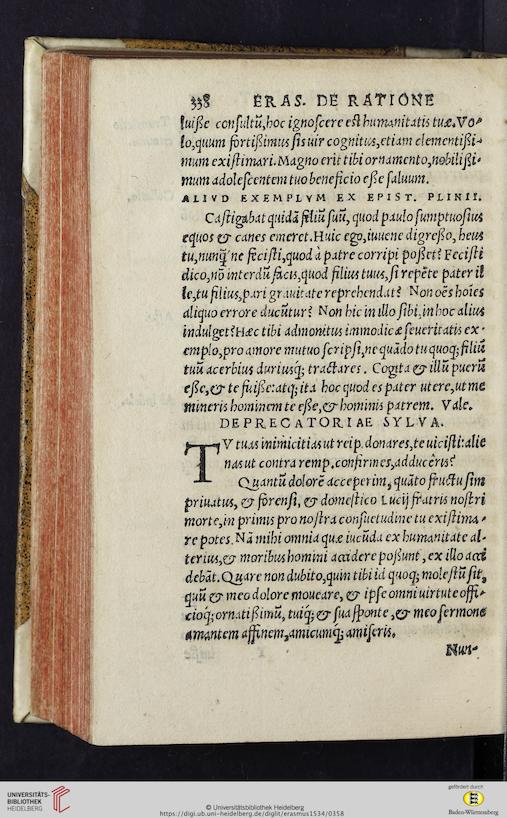 338 ERAS. DE RATIONE
luiße consultũ, hoc ignoscere est humanitatis tuæ. Vo-
lo, quum fortißimus sis uir cognitus, etiam clementißi-
mum existimari. Magno erit tibi ornamento, nobilißi-
mum adolescentem tuo beneficio eße saluum.
ALIVD EXEMPLVM EX EPIST. PLINII.
Castigabat quidã filiũ suũ, quod paulo sumptuosius
equos & canes emeret. Huic ego, iuuene digreßo, heus
tu, nunq̃ ne fecisti, quod à patre corripi poßet? Fecisti
dico, nõ interdũ facis, quod filius tuus, si repẽte pater il
le, tu filius, pari grauitate reprehendat? Non oẽs hoĩes
aliquo errore ducũtur? Non hic in illo sibi, in hoc alius
indulget? Hæc tibi admonitus immodicæ seueritatis ex-
emplo, pro amore mutuo scripsi, ne quãdo tu quoq; filiũ
tuũ acerbius duriusq; tractares. Cogita & illũ puerũ
eße, & te fuiße: atq; ita hoc quod es pater utere, ut me
mineris hominem te eße, & hominis patrem. Vale.
DEPRECATORIAE SYLVA.
TV tuas inimicitias ut reip. donares, te uicisti: alie
nas ut contra remp. confirmes, adducêris?
Quantũ dolorẽ acceperim, quãto fructu sim
priuatus, & forensi, & domestico Lucij fratris nostri
morte, in primis pro nostra consuetudine tu existima-
re potes. Nã mihi omnia quæ iucũda ex humanitate al-
terius, & moribus homini accidere poßunt, ex illo acci
debãt. Quare non dubito, quin tibi id quoq; molestũ sit,
quũ & meo dolore moueare, & ipse omni uirtute offi-
cioq; ornatißimũ, tuiq; & sua sponte, & meo sermone
amantem affinem, amicumq; amiseris.
Nun-
UNIVERSITÄTS-
BIBLIOTHEK
HEIDELBERG
© Universitätsbibliothek Heidelberg
https://digi.ub.uni-heidelberg.de/diglit/erasmus1534/0358
gefördert durch
Baden-Württemberg